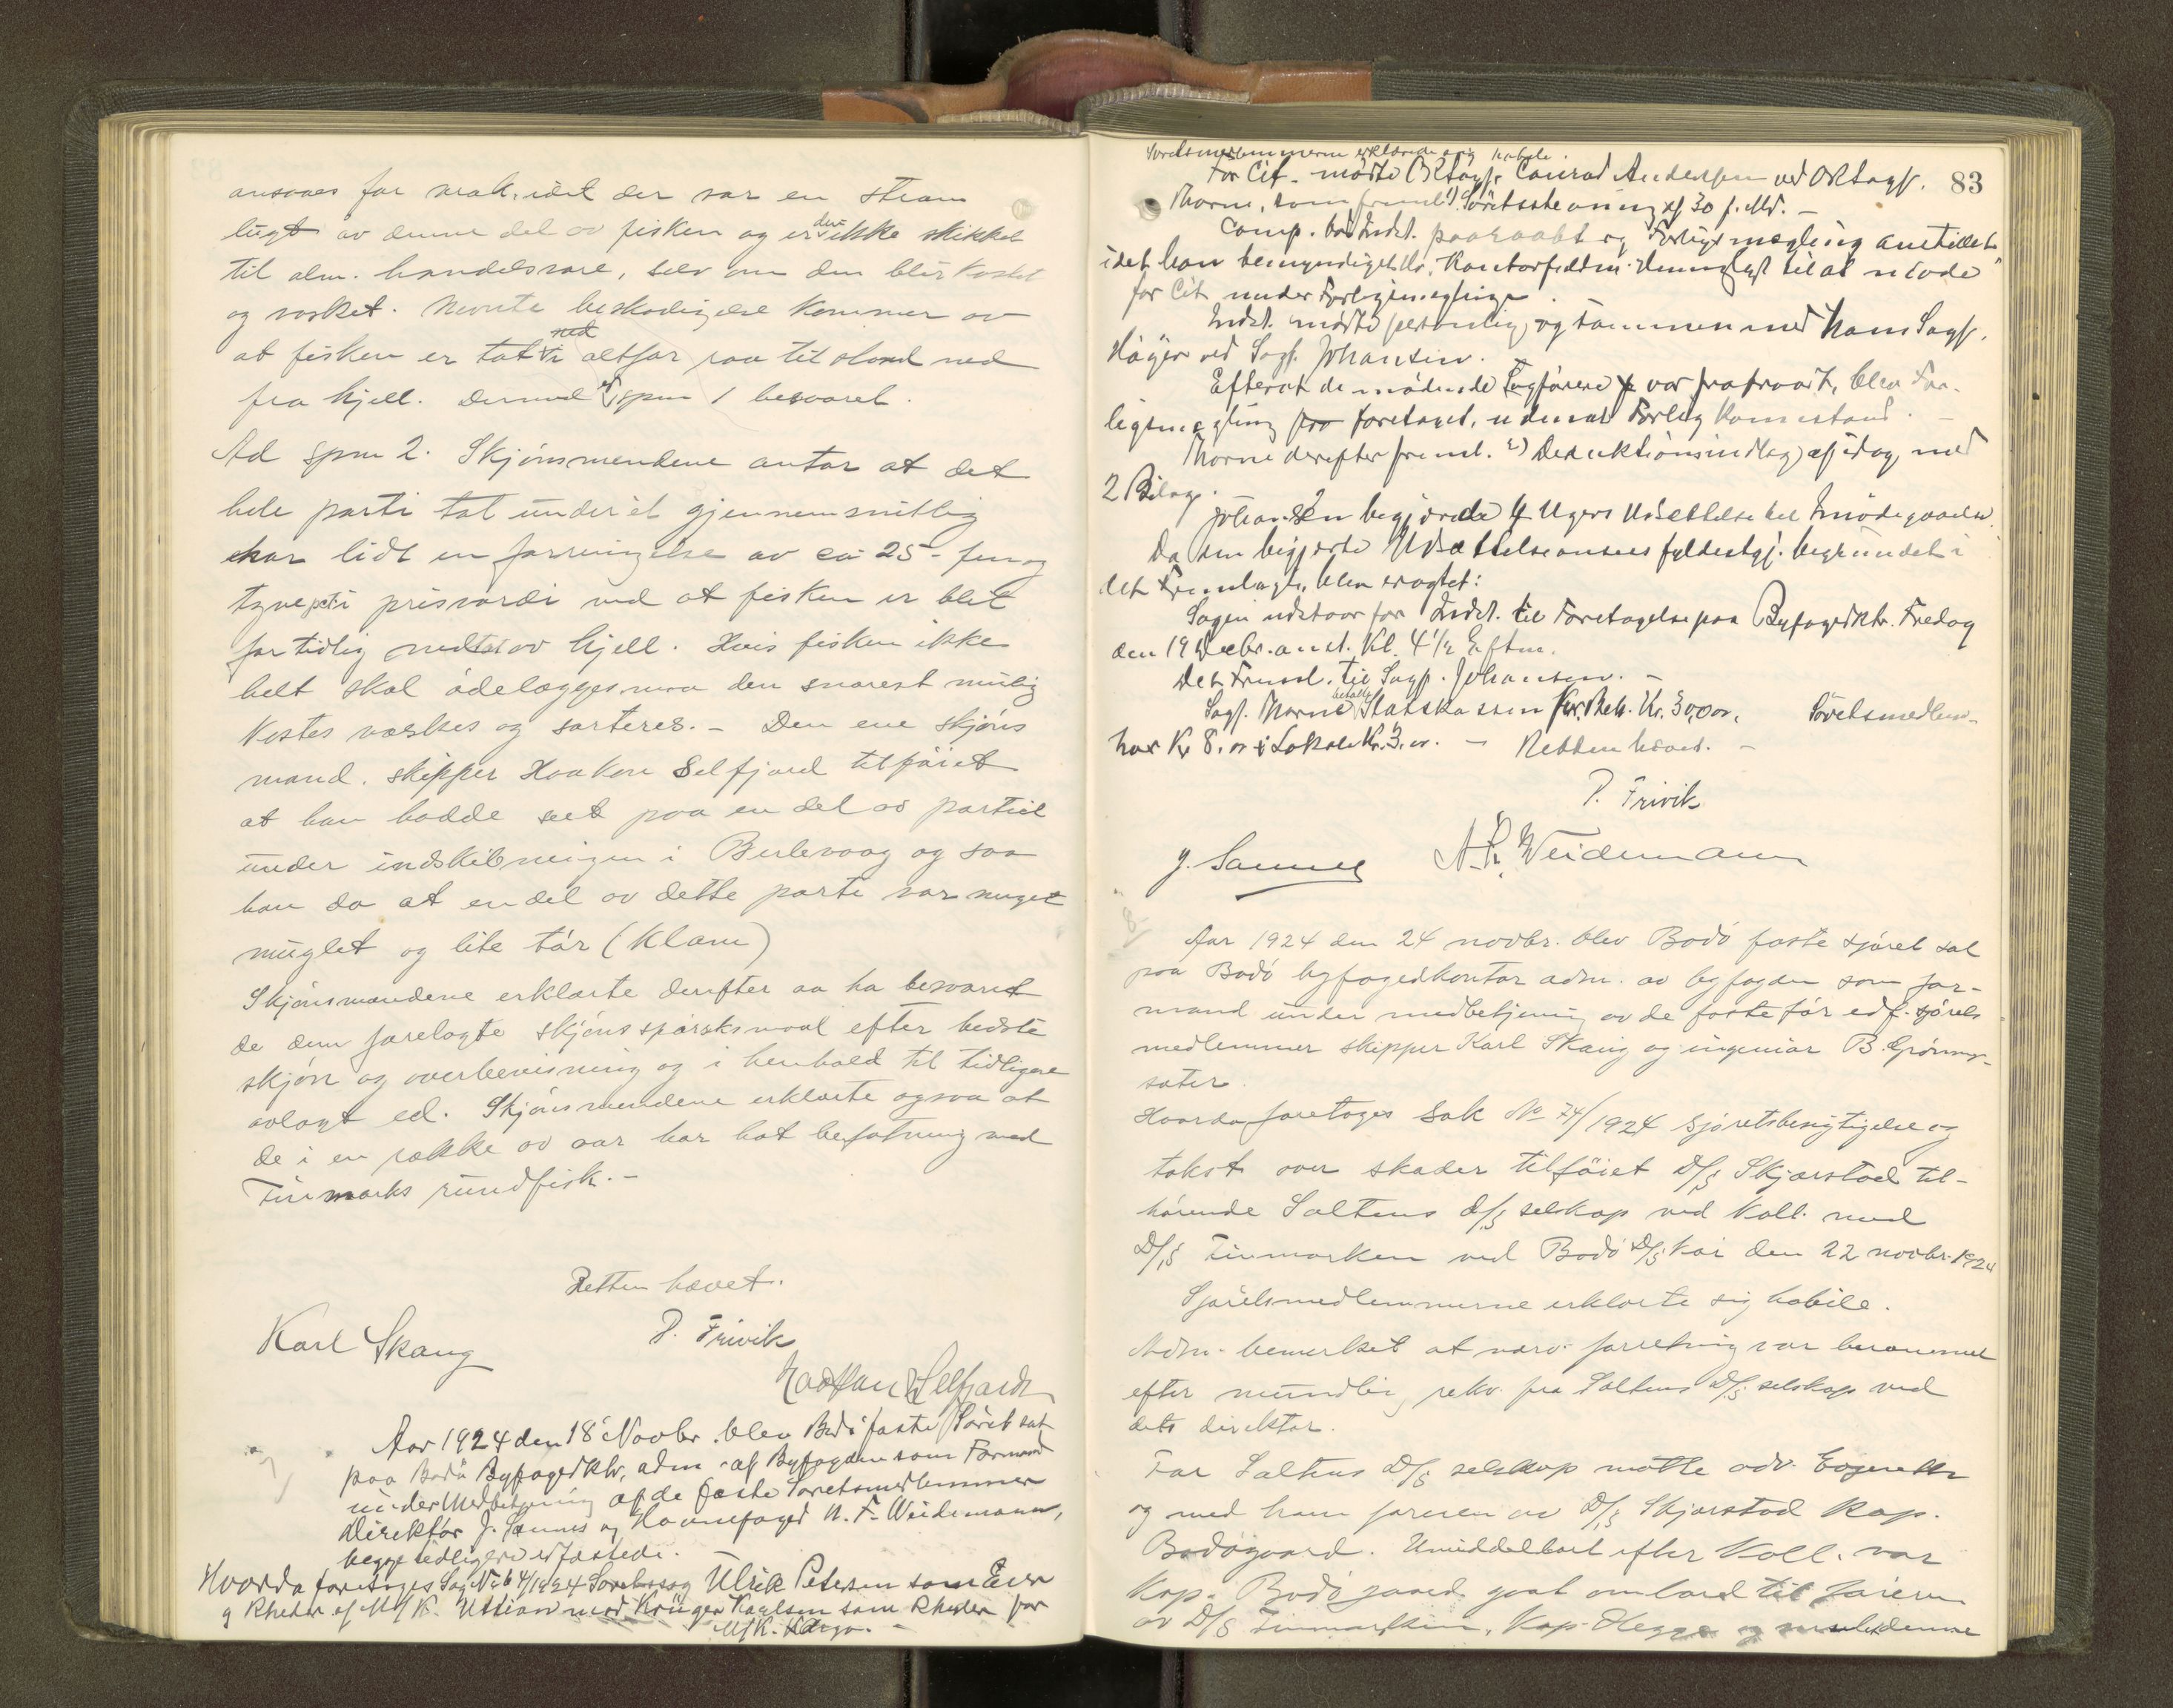 ansaaes for vrak, idet der var en stram
lugt av denne del av fisken og er den ikke skikket
til alm. handelsvare, selv om den blir kostet
og vasket. Nevnte beskadigelse kommer av
at fisken er tat ned i altfor raa tilstand ned
fra hjell. Dermed er spm 1 besvaret.
Ad spm 2. Skjønsmendene antar at det
hele parti tat under et gjennemsnitlig
har lidt en forringelse av ca 25- fem og
tyve pct i prisværdi ved at fisken er blit
for tidlig nedtat av hjell. Hvis fisken ikke
helt skal ødelægges maa den snarest mulig
kostes vaskes og sorteres. - Den ene skjøns
mand, skipper Haakon Selfjord tilføiet
at han hadde set paa en del av partiet
under indskibningen i Berlevaag og saa
han da at en del av dette parti var meget
muglet og lite tør (klam)
Skjønsmændene erklærte derefter aa ha besvaret
de dem forelagte skjønsspørsksmaal efter bedste
skjøn og overbevisning og i henhold til tidligere
avlagt ed. Skjønsmendene erklærte ogsaa at
de i en række av aar har hat befatning med
Finmarks rundfisk. -
Retten hævet.
Karl Skaug P. Frivik
Haakon Selfjord
Aar 1924 den 18 Novbr. blev Bodø faste Søret sat
paa Bodø Byfogedktr, adm. af Byfogden som Formand
under Medbetjening af de faste Søretsmedlemmer
Direktør J. Sannes og Havnefoged N. F. Weidemann,
begge tidligere edfæstede.
Hvorda foretoges Sag No 64/1924 Søretssag Ulrik Petersen som Eier
g Rheder af M/K. Utsian mod Krüger Karlsen som Rheder for
M/K. Kargo. -
83
Søretsmedlemmerne erklærede sig habile.
For Cit. mødte ORsagf. Conrad Andersen ved ORsagf.
Thorne, som freml. 1) Søretsstevning af 30 f. Md. -
Comp. bad Indst. paaraabt og Forligsmægling anstillet
idet han bemyndiget Hr. Kontorfuldm. til at møde
for Cit. under Forligsmæglinge.
Indst. mødte personlig og sammen med ham Sagf.
Høyer ved Sagf. Johansen.
Efterat de mødende Sagførere var fratraadt, blev For-
ligsmægling foretaget, uden at Forlig kom istand. -
Thorne derefter freml. 2) Deduktionsindlæg af idag med
2 Bilag.
Johansen begjærede 4 Ugers Udsættelse til Imødegaaelse.
Da den begjærte Udsættelse ansees fyldestgj. begrundet i
det Fremlagte, blev eragtet:
Sagen udstaar for Indst. til Foretagelse paa Byfogedktr. Fredag
den 19 Decbr. anst. Kl. 4 1/2 Eftm.
Det Freml. til Sagf. Johansen. -
Sagf. Thorne betalte Statskassen for Beh. Kr. 30,00, Søretsmedlem-
har Kr 8.00 & Lokale Kr. 3.00. - Retten hævet. -
P. Frivik
J. Sannes N. F. Weidemann
Aar 1924 den 24 novbr. blev Bodø faste sjøret sat
paa Bodø byfogedkontor adm. av byfogden som for-
mand under medbetjening av de faste før edf. sjørets
medlemmer skipper Karl Skaug og ingeniør B. Grønnings-
sæter.
Hvorda foretoges Sak No 74/1924 Sjøretsbesigtigelse og
takst over skader tilføiet D/S Skjerstad til-
hørende Saltens d/s selskap ved koll. med
D/S Finmarken ved Bodø D/S kai den 22 novbr. 1924
Sjøretsmedlemmerne erklærte sig habile.
Adm. bemerket at nærv. forretning var berammet
efter mundlig rekv. fra Saltens D/S selskap ved
dets direktør.
For Saltens D/S selskap møtte adv.
og med ham føreren av D/S Skjerstad kap.
Bodøgaard. Umiddelbart efter koll. var
Kap. Bodøgaard gaat ombord til føreren
av D/S Finmarken, Kap. Hegge og denne